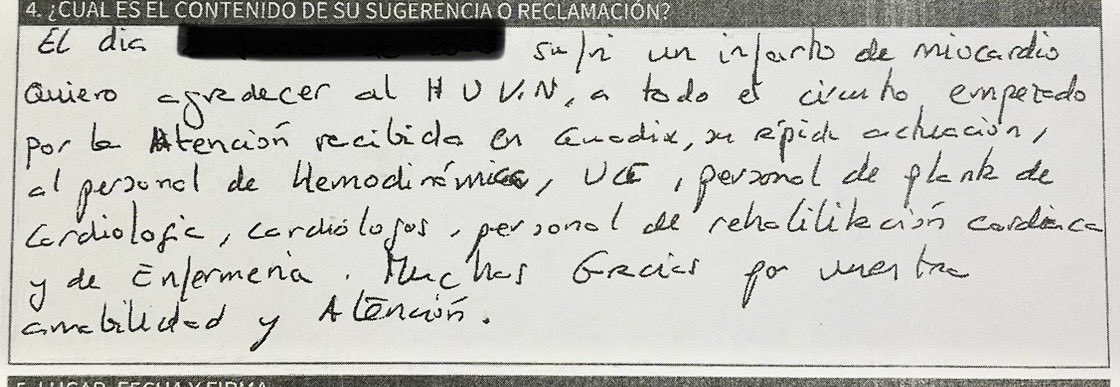 4. ¿CUÁL ES EL CONTENIDO DE SU SUGERENCIA O RECLAMACIÓN?
El día sufrí un infarto de miocardio
Quiero agradecer al H U V.N, a todo el circuito, empezado
por la Atención recibida en Guadix, su rápida actuación,
al personal de Hemodinámica, UCE, personal de planta de
Cardiología, cardiólogos, personal de rehabilitación cardiaca
y de Enfermería. Muchas Gracias por vuestra
amabilidad y Atención.
5. LUGAR, FECHA Y FIRMA